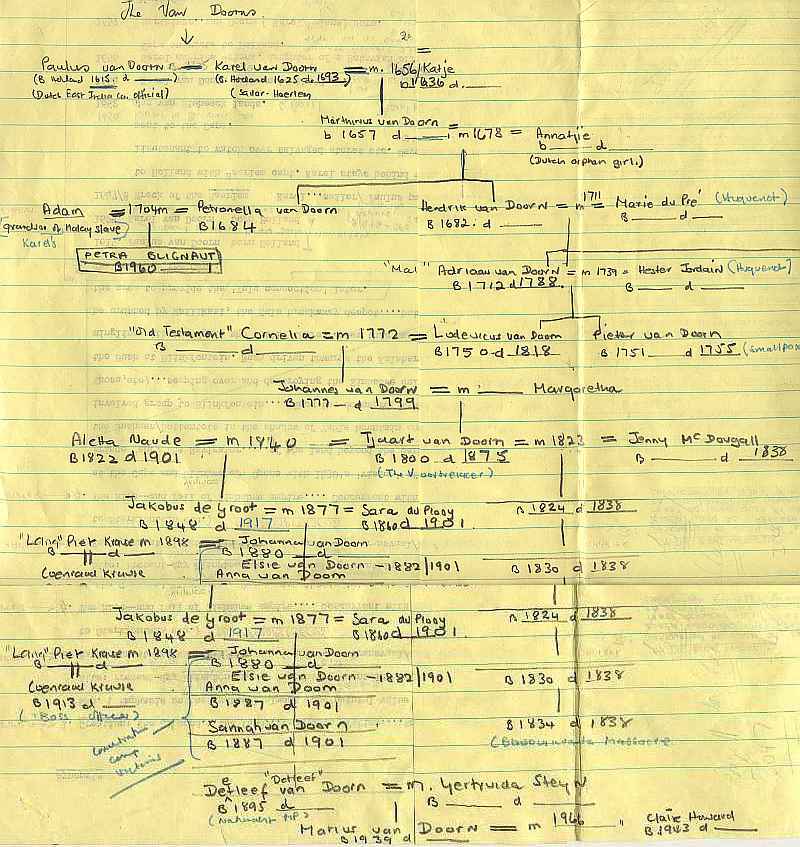 The Van Doorns.
Paulus van Doorn = Karel van Doorn = m. 1656/Katje
(B Holland 1615. d ____) (B. Holland 1625 d. 1693) b. 1636 d. ____
(Dutch East India Co. official) (Sailor - Haerlem)
Marthinus van Doorn = m 1678 = Annatjie
b 1657 d ____ b ____ d ____
(Dutch orphan girl.)
Adam = 1704m = Petronella van Doorn Hendrik van Doorn = m 1711 = Marie du Pré (Huguenot)
(grandson of Malay slave) B 1684 B 1682. d ____ B ____ d ____
Karel's
PETRA BLIGNAUT
B1960
"Mal" Adriaan van Doorn = m 1739 = Hester Jordain (Huguenot)
B 1712 d 1788. B ____ d ____
"Old Testament" Cornelia = m 1772 = Lodewicus van Doorn Pieter van Doorn
B ____ d ____ B 1750 d 1818 B 1751 ____ d 1755 (smallpox
Johannes van Doorn = m: ____ Margaretha
B 1777 d 1799
Aletta Naude = m 1840 = Tjaart van Doorn = m 1823 = Jenny McDougall
B 1822 d 1901 B 1800 d 1875 B ____ d 1838
(The Voortrekker)
Jakobus de Groot = m 1877 = Sara du Plooy B 1824 d 1838
B 1848 d 1917 B 1860 d 1901
"Lang" Piet Krause m 1898 = Johanna van Doorn
B ____ d ____ B 1880 ____ d
Elsie van Doorn - 1882/1901 B 1830 d 1838
Coenraad Krause Anna van Doorn
Jakobus de Groot = m 1877 = Sara du Plooy B 1824 d 1838
B 1848 d 1917 B 1860 d 1901
"Lang" Piet Krause m 1898 = Johanna van Doorn
B ____ d ____ B 1880 ____ d ____
Elsie van Doorn - 1882/1901 B 1830 d 1838
Coenraad Krause Anna van Doorn
B 1913 d ____ B 1887 d 1901
Sannah van Doorn B 1834 d 1838
B 1887 d 1901
Concentration
camp
victims
Massacre
e "Detleef"
Detleef van Doorn = m. Gertruida Steyn
B 1895 d ____ B ____ d ____
(Nationalist MP)
Marius van Doorn = m 1966 " Claire Howard
B 1939 d B 1943 d ____